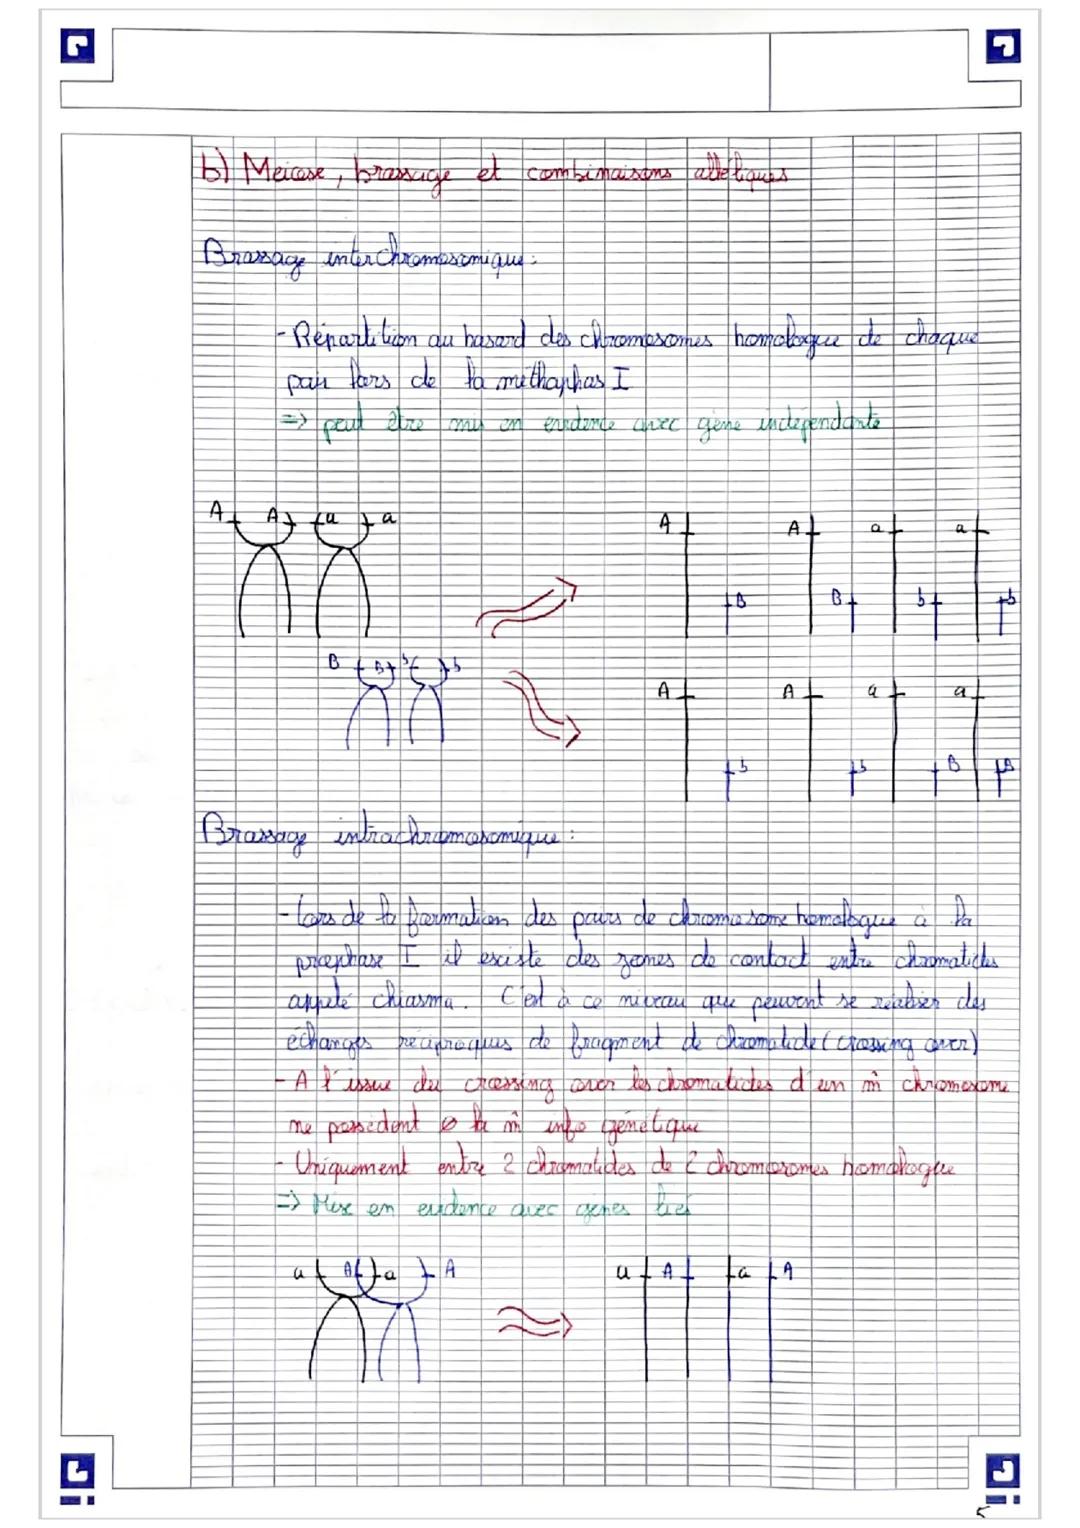 b) Meiose, brassage et combinaisons alléliques
Brassage interchromosomique:
- Répartition au hasard des chromosomes homologue de chaque
pair lors de la méthaphas I
=> peut être mis en evidence avec gène indépendants
A A a a
A A a a
B B b b
B B b b
A A a a
b b B B
Brassage intrachromosomique:
- Lors de la formation des pairs de chromosome homologue à la
prophase I il existe des zones de contact entre chromatides
appelé chiasma. C'est à ce niveau que peuvent se réaliser des
échanges réciproques de fragment de chromatide (crossing over)
- A l'issue du crossing over les chromatides d'un m̂ chromosome
ne possèdent ø la m̂ info génétique
- Uniquement entre 2 chromatides de 2 chromosomes homologue
=> Mise en evidence avec gènes liés
a A a A
a A a A
5